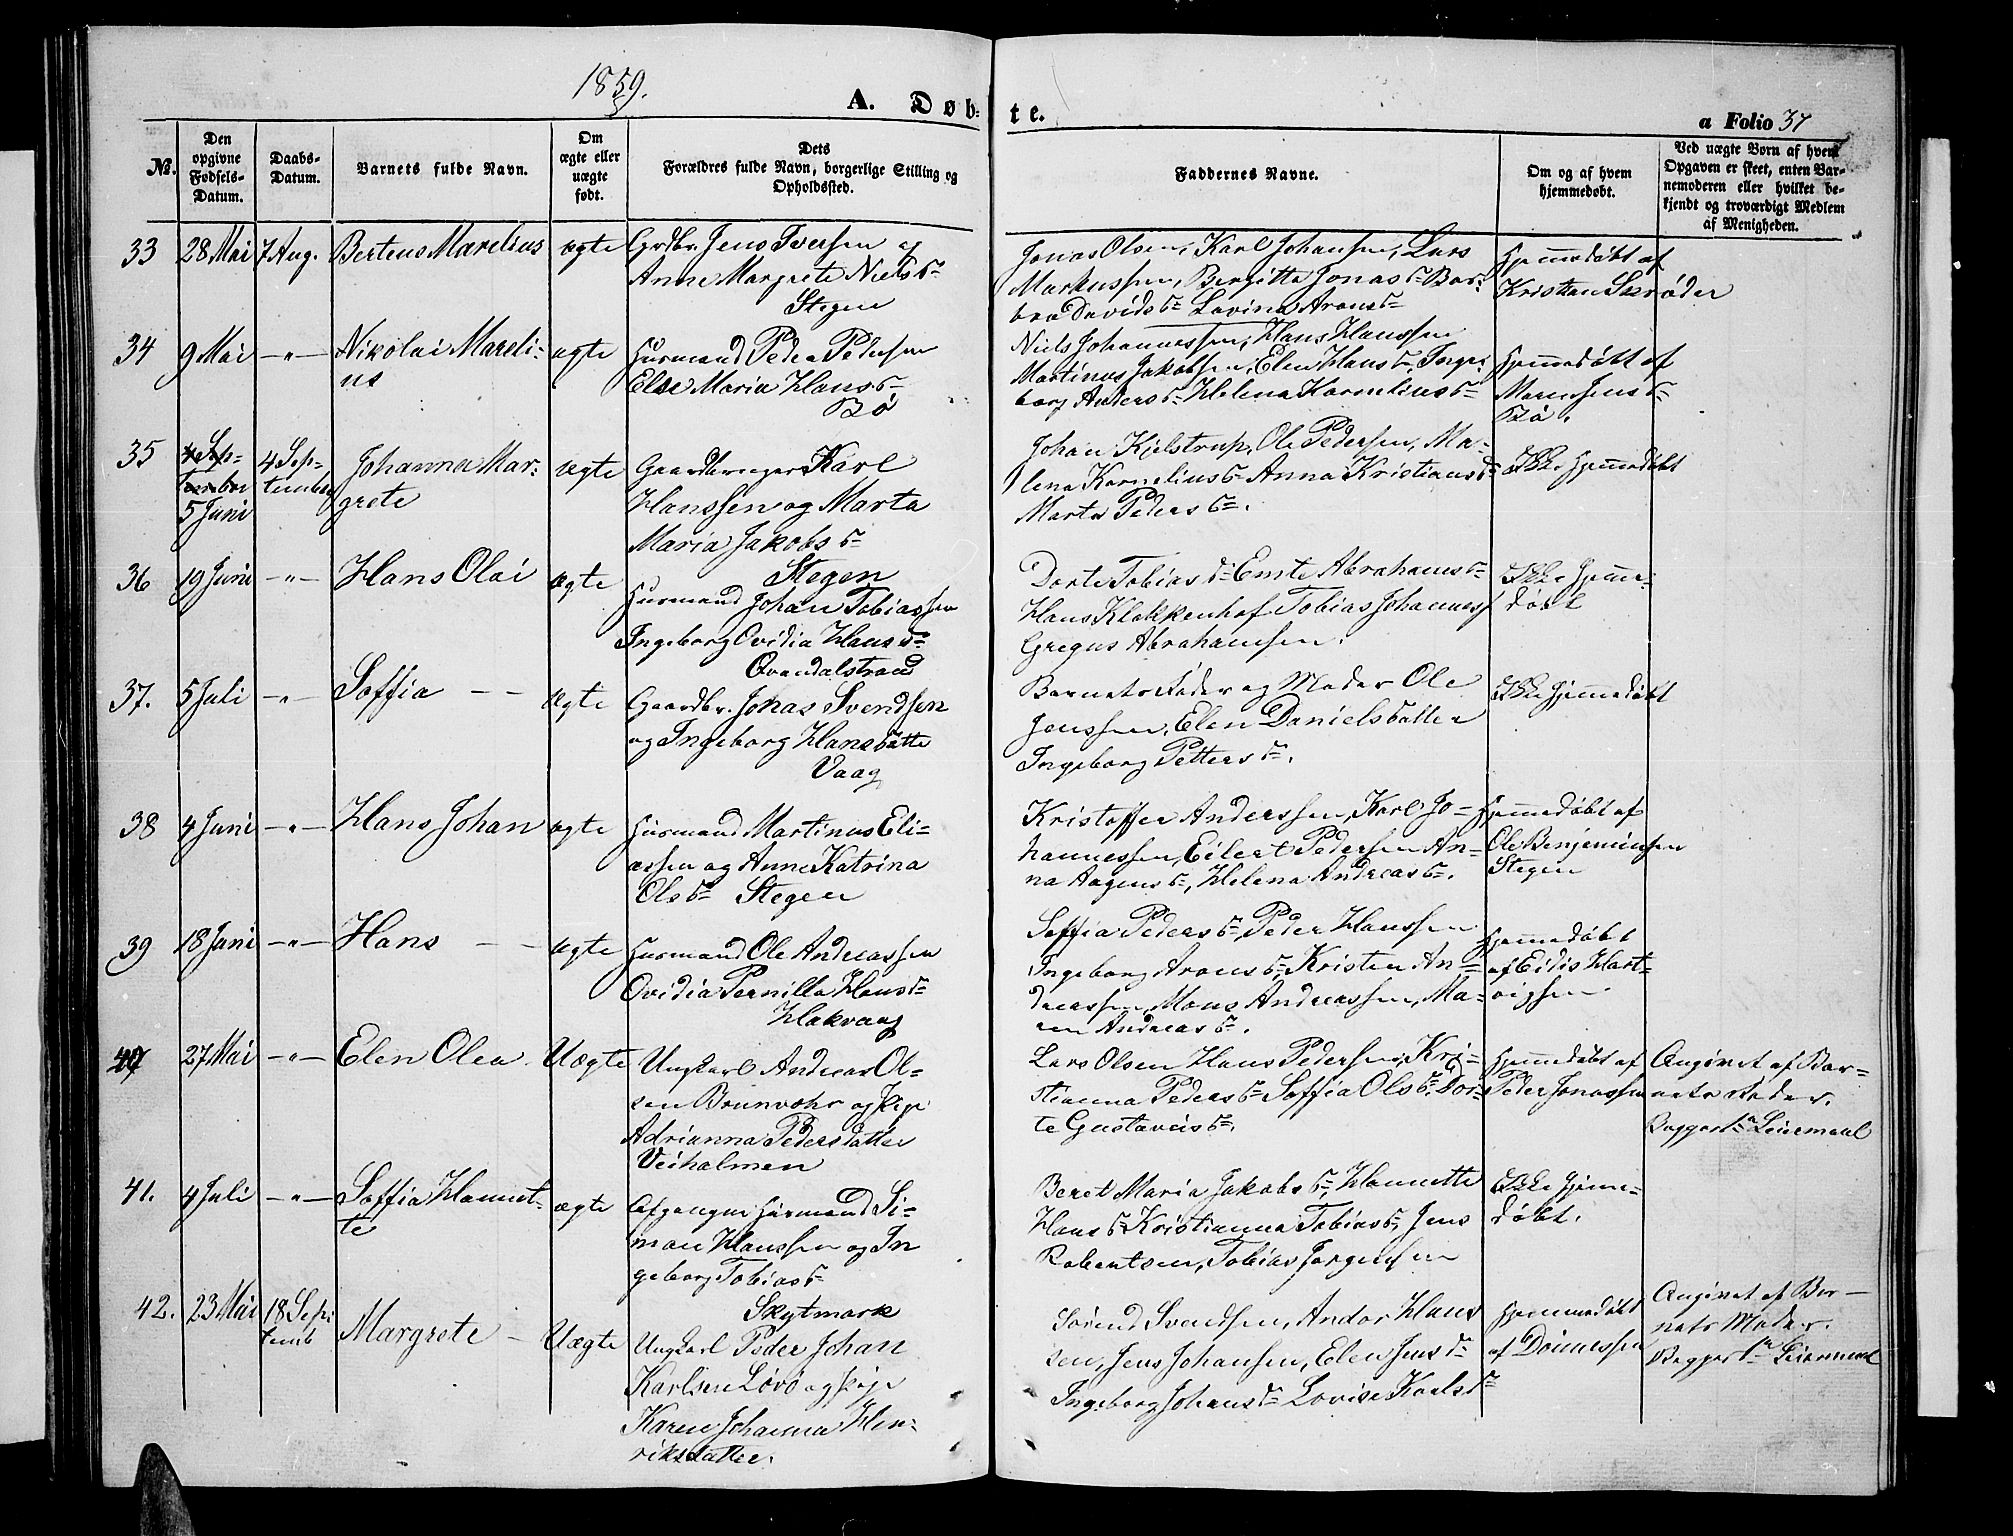 1859.
A. Døb-
te.
a Folio 37
No.
Den opgivne Fødsels-Datum.
Daabs-Datum.
Barnets fulde Navn.
Om ægte eller uægte født.
Dets Forældres fulde Navn, borgerlige Stilling og Opholdssted.
Faddernes Navne.
Om og af hvem hjemmedøbt.
Ved uægte Børn af hvem Opgaven er skeet, enten Barnemoderen eller hvilket bekjendt og troværdigt Medlem af Menigheden.
33 28 Mai 7 Aug. Bertens Marelius ægte Grdbr. Jens Iversen og
Anne Margrete Niels D=
Stegen
Jonas Olsen, Karl Johansen, Lars
Markussen, Bergitta Jonas D= Bar-
bra Davids D= Lovina Arons D=
Hjemmedøbt af
Kristian Skrøder
34 9 Mai —"— Nikolai Mareli-
us
ægte Husmand Peder Pedersen
Else Maria Hans D=
Bø
Niels Johannessen, Hans Hanssen
Martinus Jakobsen, Elen Hans D=, Inge-
borg Anders D= Helena Kornelius D=
Hjemmedøbt af
Maren Jens D=
Bø.
35 4 Sep-
tember
5 Juni
4 Sep-
tember
Johanna Mar-
grete
ægte Gaardbruger Karl
Hanssen og Marta
Maria Jakobs D=
Stegen
Johan Kjelstrup, Ole Pedersen, Ma-
lena Kornelius D= Anna Kristians D=
Marta Peders D=.
Ikke Hjemmedøbt
36 19 Juni —"— Hans Olai ægte Husmand Johan Tobiassen
Ingeborg Ovidia Hans D=
Qvandalstrand
Dorte Tobias D= Emte Abrahams D=
Hans Klokkenhof Tobias Johanness
Gregus Abrahamsen.
Ikke Hjemme-
døbt
37. 5 Juli —"— Soffia — — ægte Gaardbr. Jonas Svendsen
og Ingeborg Hansdatte
Vaag
Barnets Fader og Moder Ole
Jenssen, Elen Danielsdatter
Ingeborg Petters D=.
Ikke Hjemmedøbt
38 4 Juni —"— Hans Johan ægte Husmand Martinus Eli-
assen og Anne Katrina
Ols D= Stegen
Kristoffer Anderssen, Karl Jo-
hannessen, Eilert Pedersen An-
na Aagens D=, Helena Andreas D=.
Hjemmedøbt af
Ole Benjeminsen
Stegen
39 18 Juni —"— Hans — — ægte Husmand Ole Andreassen
Ovidia Pernilla Hans D=
Hakvaag
Soffia Peders D=, Peder Hanssen
Ingeborg Arons D=, Kristen An-
dreassen, Mons Andreassen, Ma-
ren Andreas D=.
Hjemmedøbt
af Eidis Hart-
vigsen
40 27 Mai —"— Elen Olea. Uægte Ungkarl Andreas Ol-
sen Brunvohr og Pige
Adrianna Pedersdatter
Veiholmen
Lars Olsen Hans Pedersen, Kri-
stianna Peders D= Soffia Ols D= Dor-
te Gustavus D=.
Hjemmedøbt af
Peder Jonassen
Angivet af Bar-
nets Fader.
Begges 1te Leiermaal
41. 4 Juli —"— Soffia Hannet-
te
ægte Afgangne Husmand Si-
mon Hanssen og In
geborg Tobias D=
Skytmark
Beret Maria Jakobs D=, Hannette
Hans D= Kristianna Tobias D= Jens
Robertsen, Tobias Jørgensen
Ikke Hjemme-
døbt.
42. 23 Mai 18 Sep:
temb
Margrete — Uægte Ungkarl Peder Johan
Karlsen Løvø og Pige
Karen Johanna Hen-
riksdatter.
Sørend Svendsen, Andor Hans
sen, Jens Johansen, Elen Jens D=
Ingeborg Johans D= Lovise Karls D=
Hjemmedøbt
af Dønnessen
Angivet af Bar-
nets Moder.
Begges 1te Leiermaal